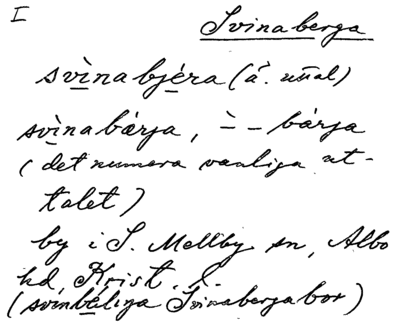 I Svinaberga
svìnabjéra (ä. uttal)
svìnabárja, ˋ - - bárja
(det numera vanliga ut-
talet)
by i S. Mellby sn, Albo
hd, Krist. l.
(svinbéliga Svinabergabor)